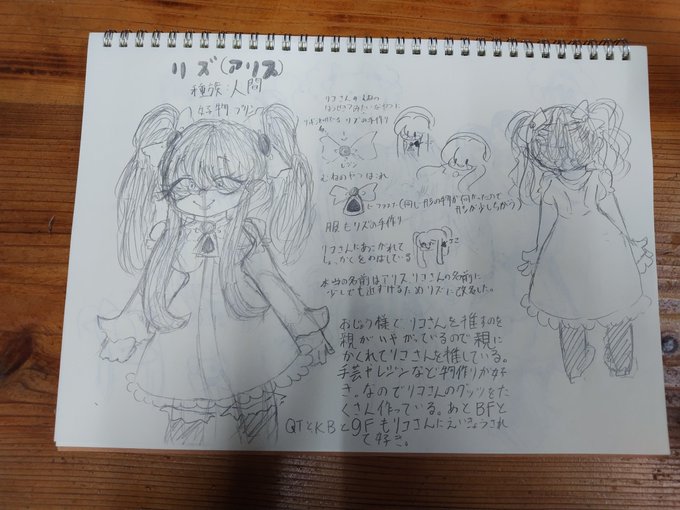 リズ(アリス)
種族 人間
好物 プリン
リズの手作り
レジン
むねのやつはこれ
服もリズの手作り
リコさんにあこがれて
しょっかくをのばしている
ココ
本当の名前はアリス リコさんの名前に
少しでも近ずけるためリズに改名した。
おじょう様でリコさんを推すのを
親がいやがっているので親に
かくれてリコさんを推している。
手芸やレジンなど物作りが好
き。なのでリコさんのグッツをた
くさん作っている。あとBFと
QTとKBとGFもリコさんにえいきょうされ
て好き。